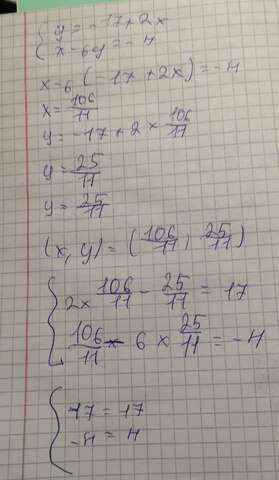 y = -17+2x
x-6y = -4
x-6 (-17+2x) = -4
x = 106/11
y = -17+2 × 106/11
y = 25/11
y = 25/11
(x, y) = (106/11 ; 25/11)
2× 106/11 - 25/11 = 17
106/11 - 6 × 25/11 = -4
17 = 17
-4 = 4